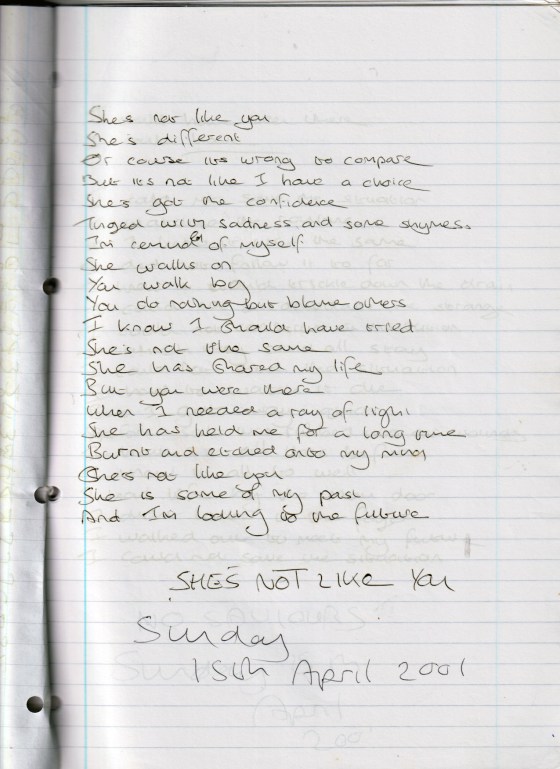 She's not like you
She's different
Of course its wrong to compare
But it's not like I have a choice
She's got the confidence
Tinged with sadness and some shyness
I'm remind of myself
She walks on
You walk by
You do nothing but blame others
I know I should have tried
She's not the same
She has shared my life
But you were there
When I needed a ray of light
She has held me for a long time
Burnt and etched onto my mind
She's not like you
She is some of my past
And I'm looking to the future
SHE'S NOT LIKE YOU
Sunday
15th April 2001